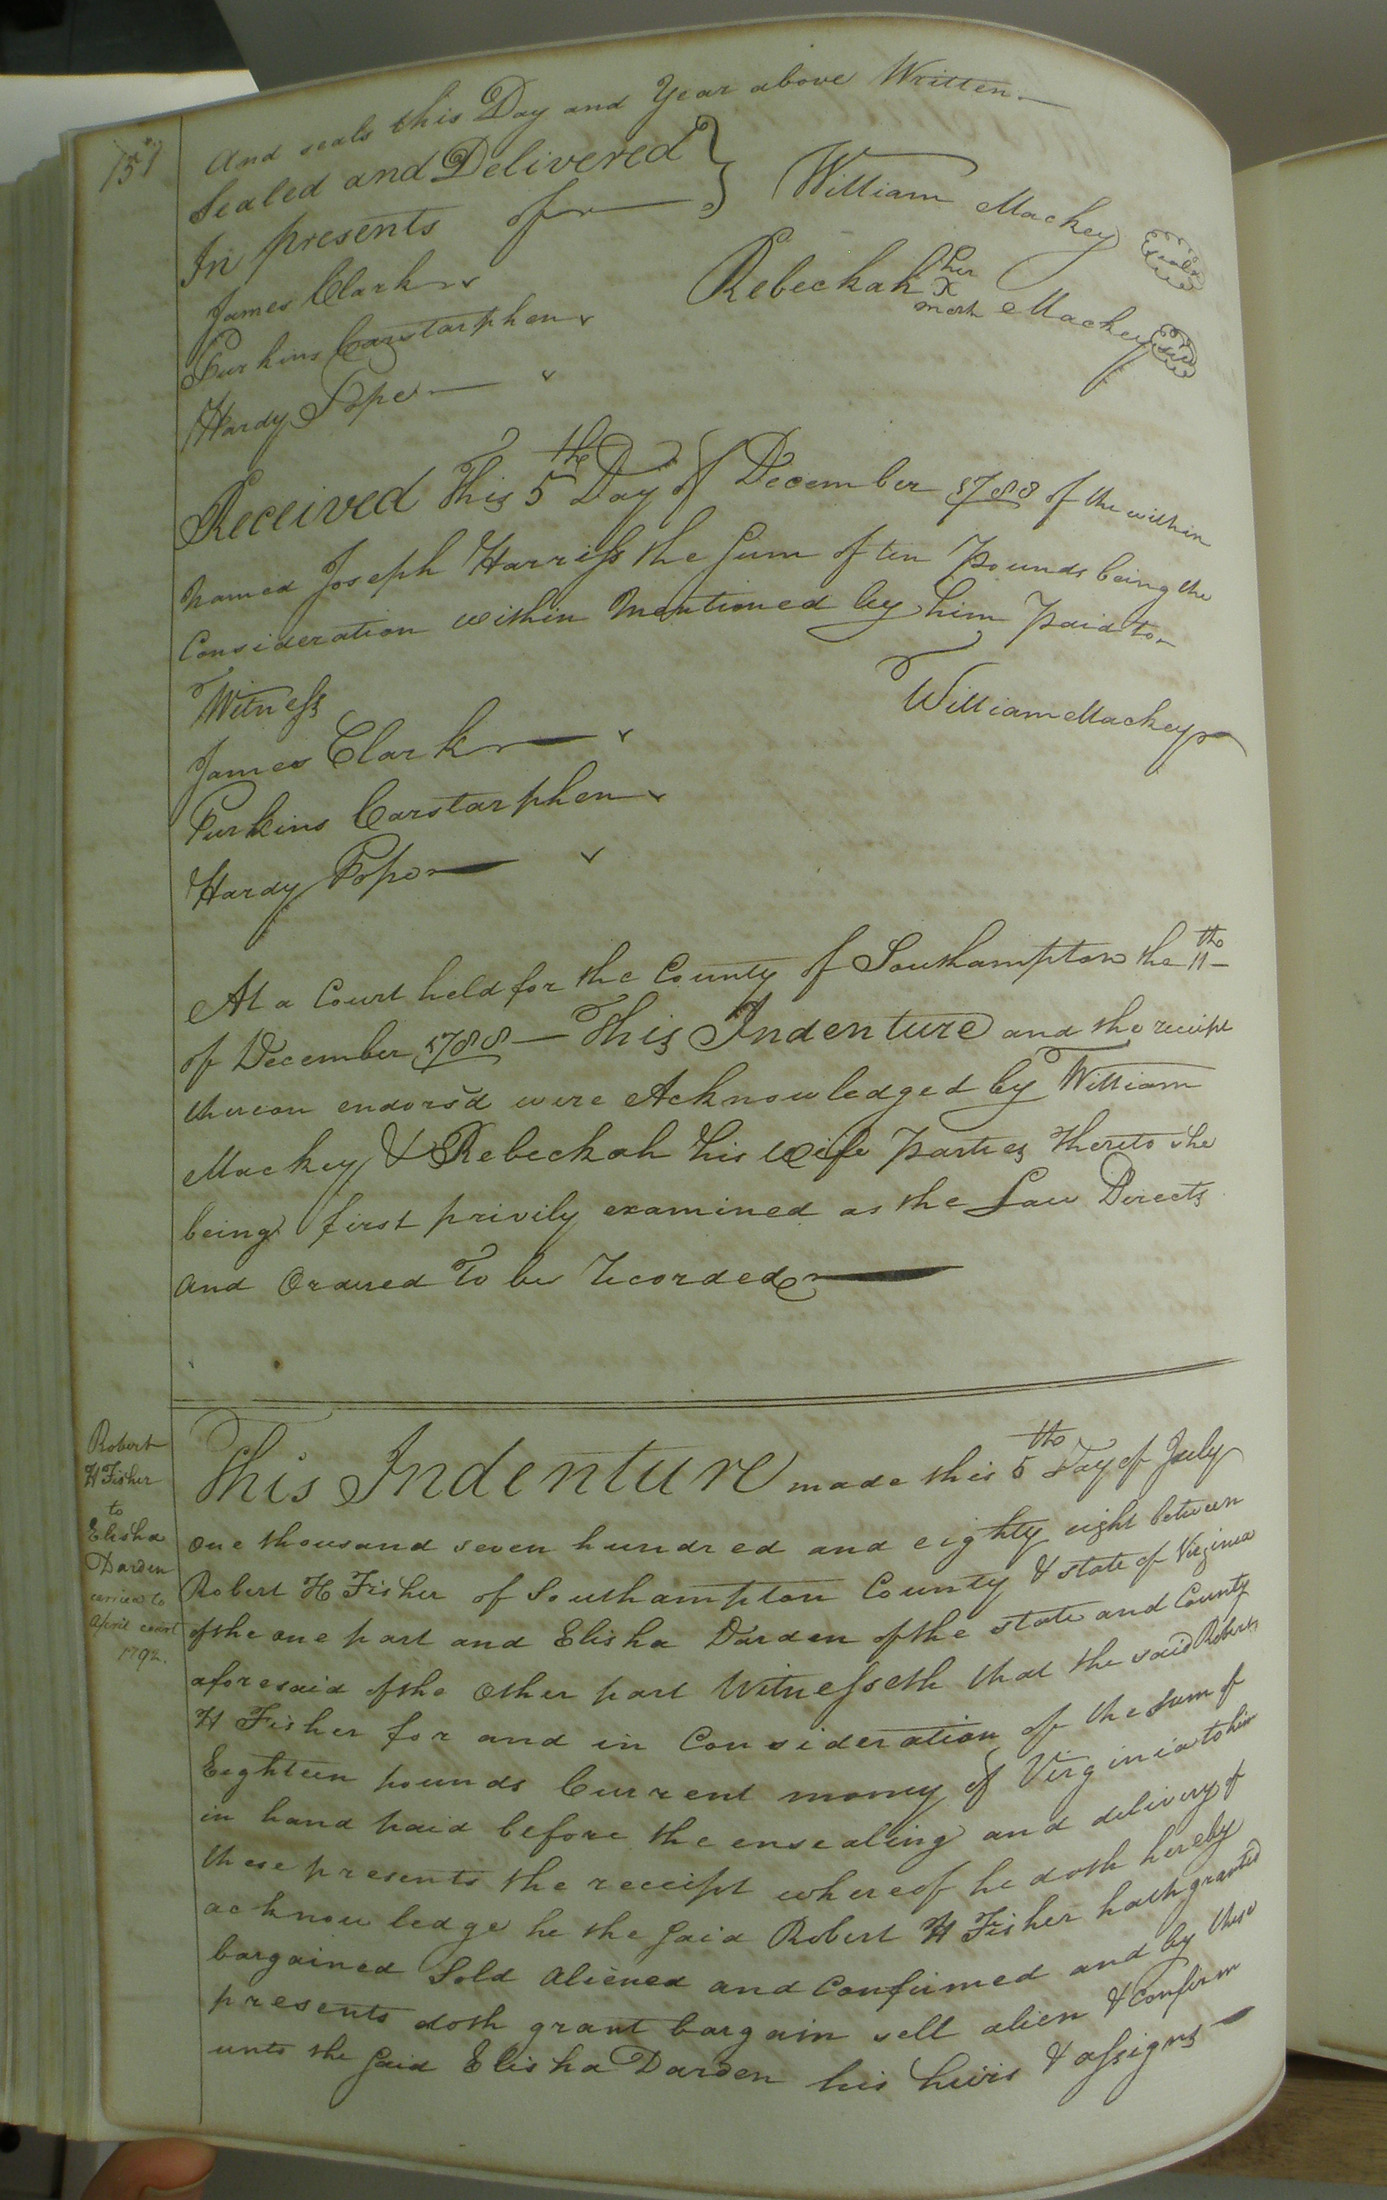 151
And seals this Day and Year above Written
Sealed and Delivered
In presents of
William Mackey seal
James Clark
Rebeckah her X mark Mackey seal
Purkins Carstarphen
Hardy Pope
Received This 5th Day of December 1788 of the within
named Joseph Harriss the Sum of ten Pounds being the
Consideration within Mentioned by him Paid to
Witness
William Mackey
James Clark
Purkins Carstarphen
Hardy Pope
At a Court held for the County of Southampton the 11th
of December 1788 — This Indenture and the receipt
thereon endors'd were Acknowledged by William
Mackey & Rebeckah his wife Parties Thereto she
being first privily examined as the Law Directs
and Ordered To be Recorded
Robert
H Fisher
to
Elisha
Darden
carried to
April court
1792.
This Indenture made this 5th Day of July
one thousand seven hundred and eighty eight between
Robert H Fisher of Southampton County & state of Virginia
of the one part and Elisha Darden of the state and County
aforesaid of the Other part Witnesseth that the said Robert
H Fisher for and in Consideration of the Sum of
Eighteen pounds Current money of Virginia to him
in hand paid before the ensealing and delivery of
these presents the receipt whereof he doth hereby
acknowledge he the Said Robert H Fisher hath granted
bargained Sold aliened and Confirmed and by these
presents doth grant bargain sell alien & Confirm
unto the Said Elisha Darden his heirs & assigns